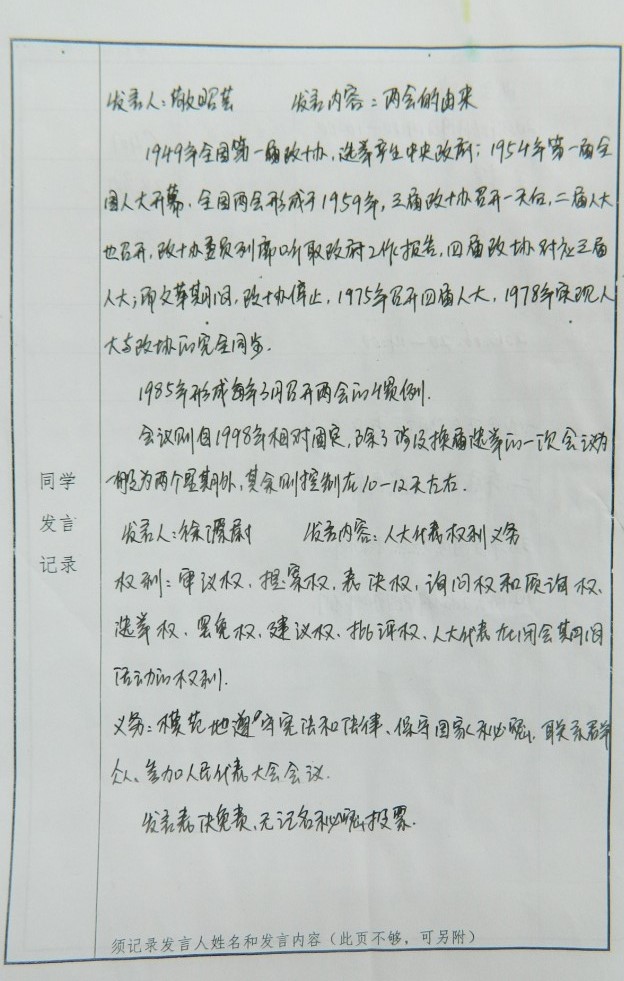 发言人：敬昭芸 发言内容：两会的由来
1949年全国第一届政协，选举产生中央政府；1954年第一届全
国人大开幕，全国两会形成于1959年，三届政协召开一天后，二届人大
也召开，政协委员列席听取政府工作报告，四届政协对应三届
人大；而文革期间，政协停止，1975年召开四届人大，1978年实现人
大与政协的完全同步.
1985年形成每年3月召开两会的惯例.
会议则自1998年相对固定，除了涉及换届选举的一次会议为
一般为两个星期外，其余则控制在10-12天左右.
同学
发言
记录
发言人：徐 尉 发言内容：人大代表权利义务
权利：审议权、提案权、表决权、询问权和质询权、
选举权、罢免权、建议权、批评权、人大代表在闭会期间
活动的权利.
义务：模范地遵守宪法和法律、保守国家秘密、联系群
众、参加人民代表大会会议.
发言表决免责、无记名秘密投票.
须记录发言人姓名和发言内容（此页不够，可另附）